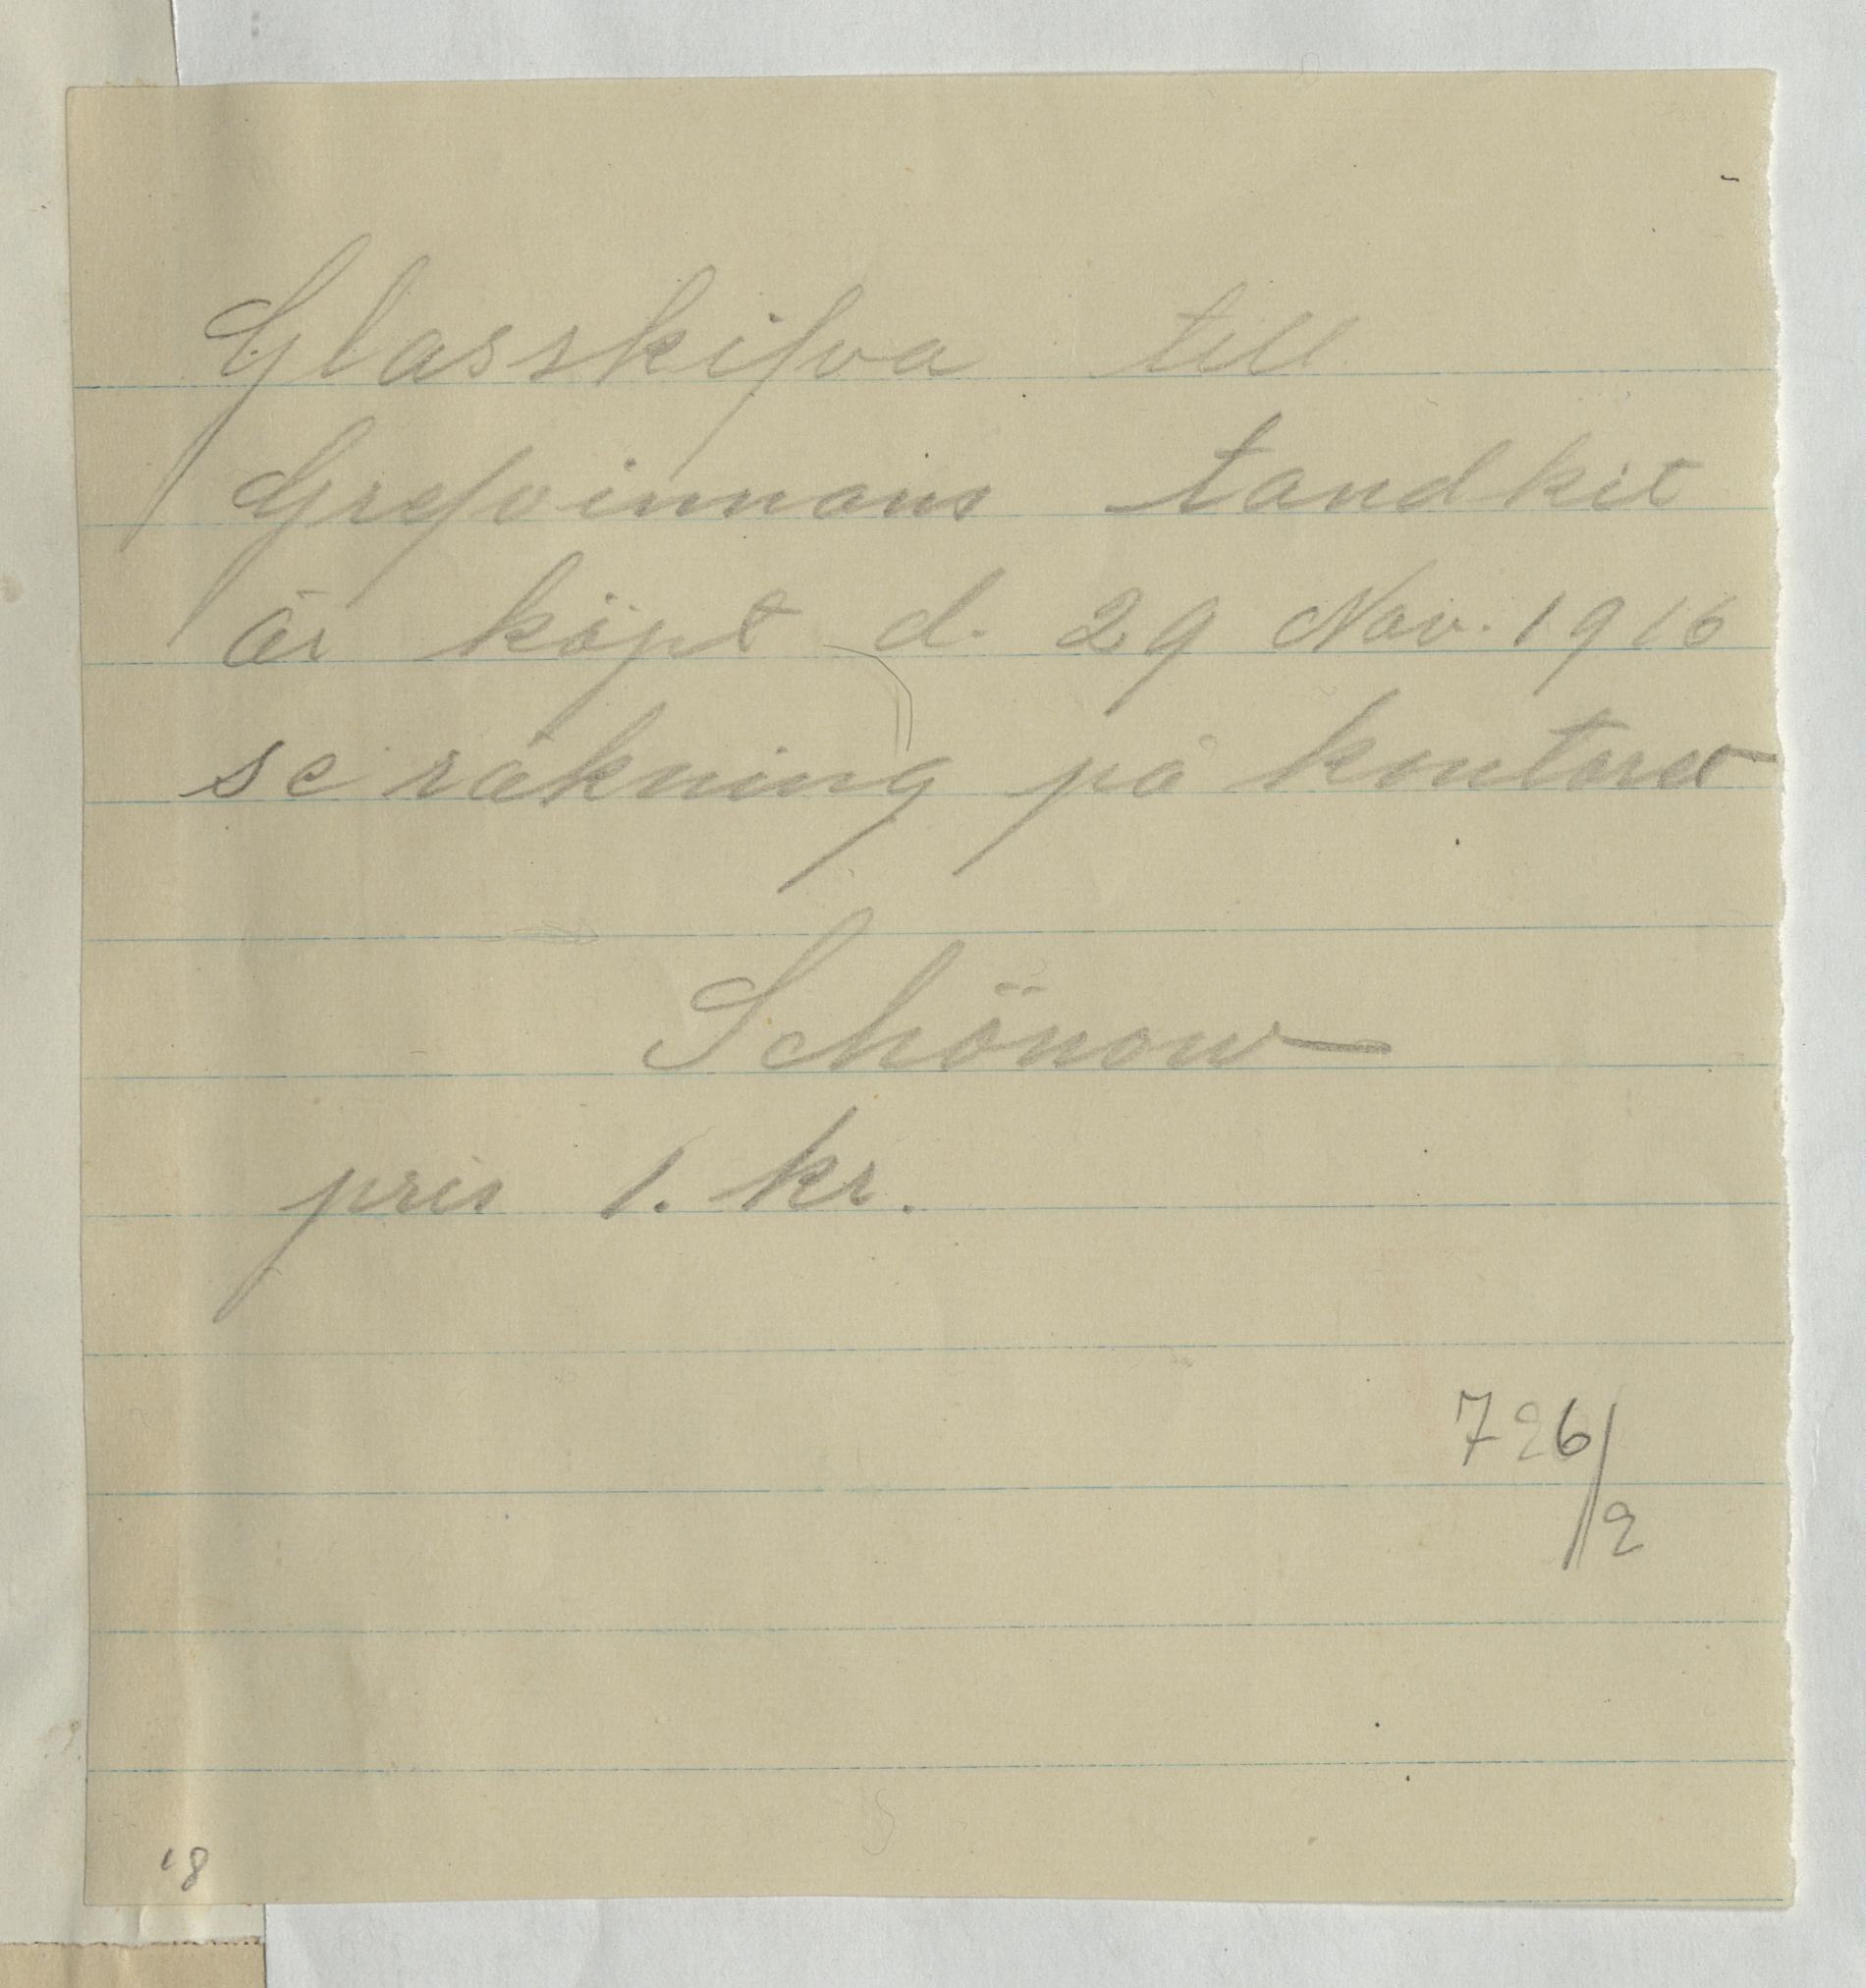 Glasskifva till
Grefvinnans tandkit
är köpt d. 29 Nov. 1916
se räkning på kontoret
Schönow
pris 1. kr.
726/2
18